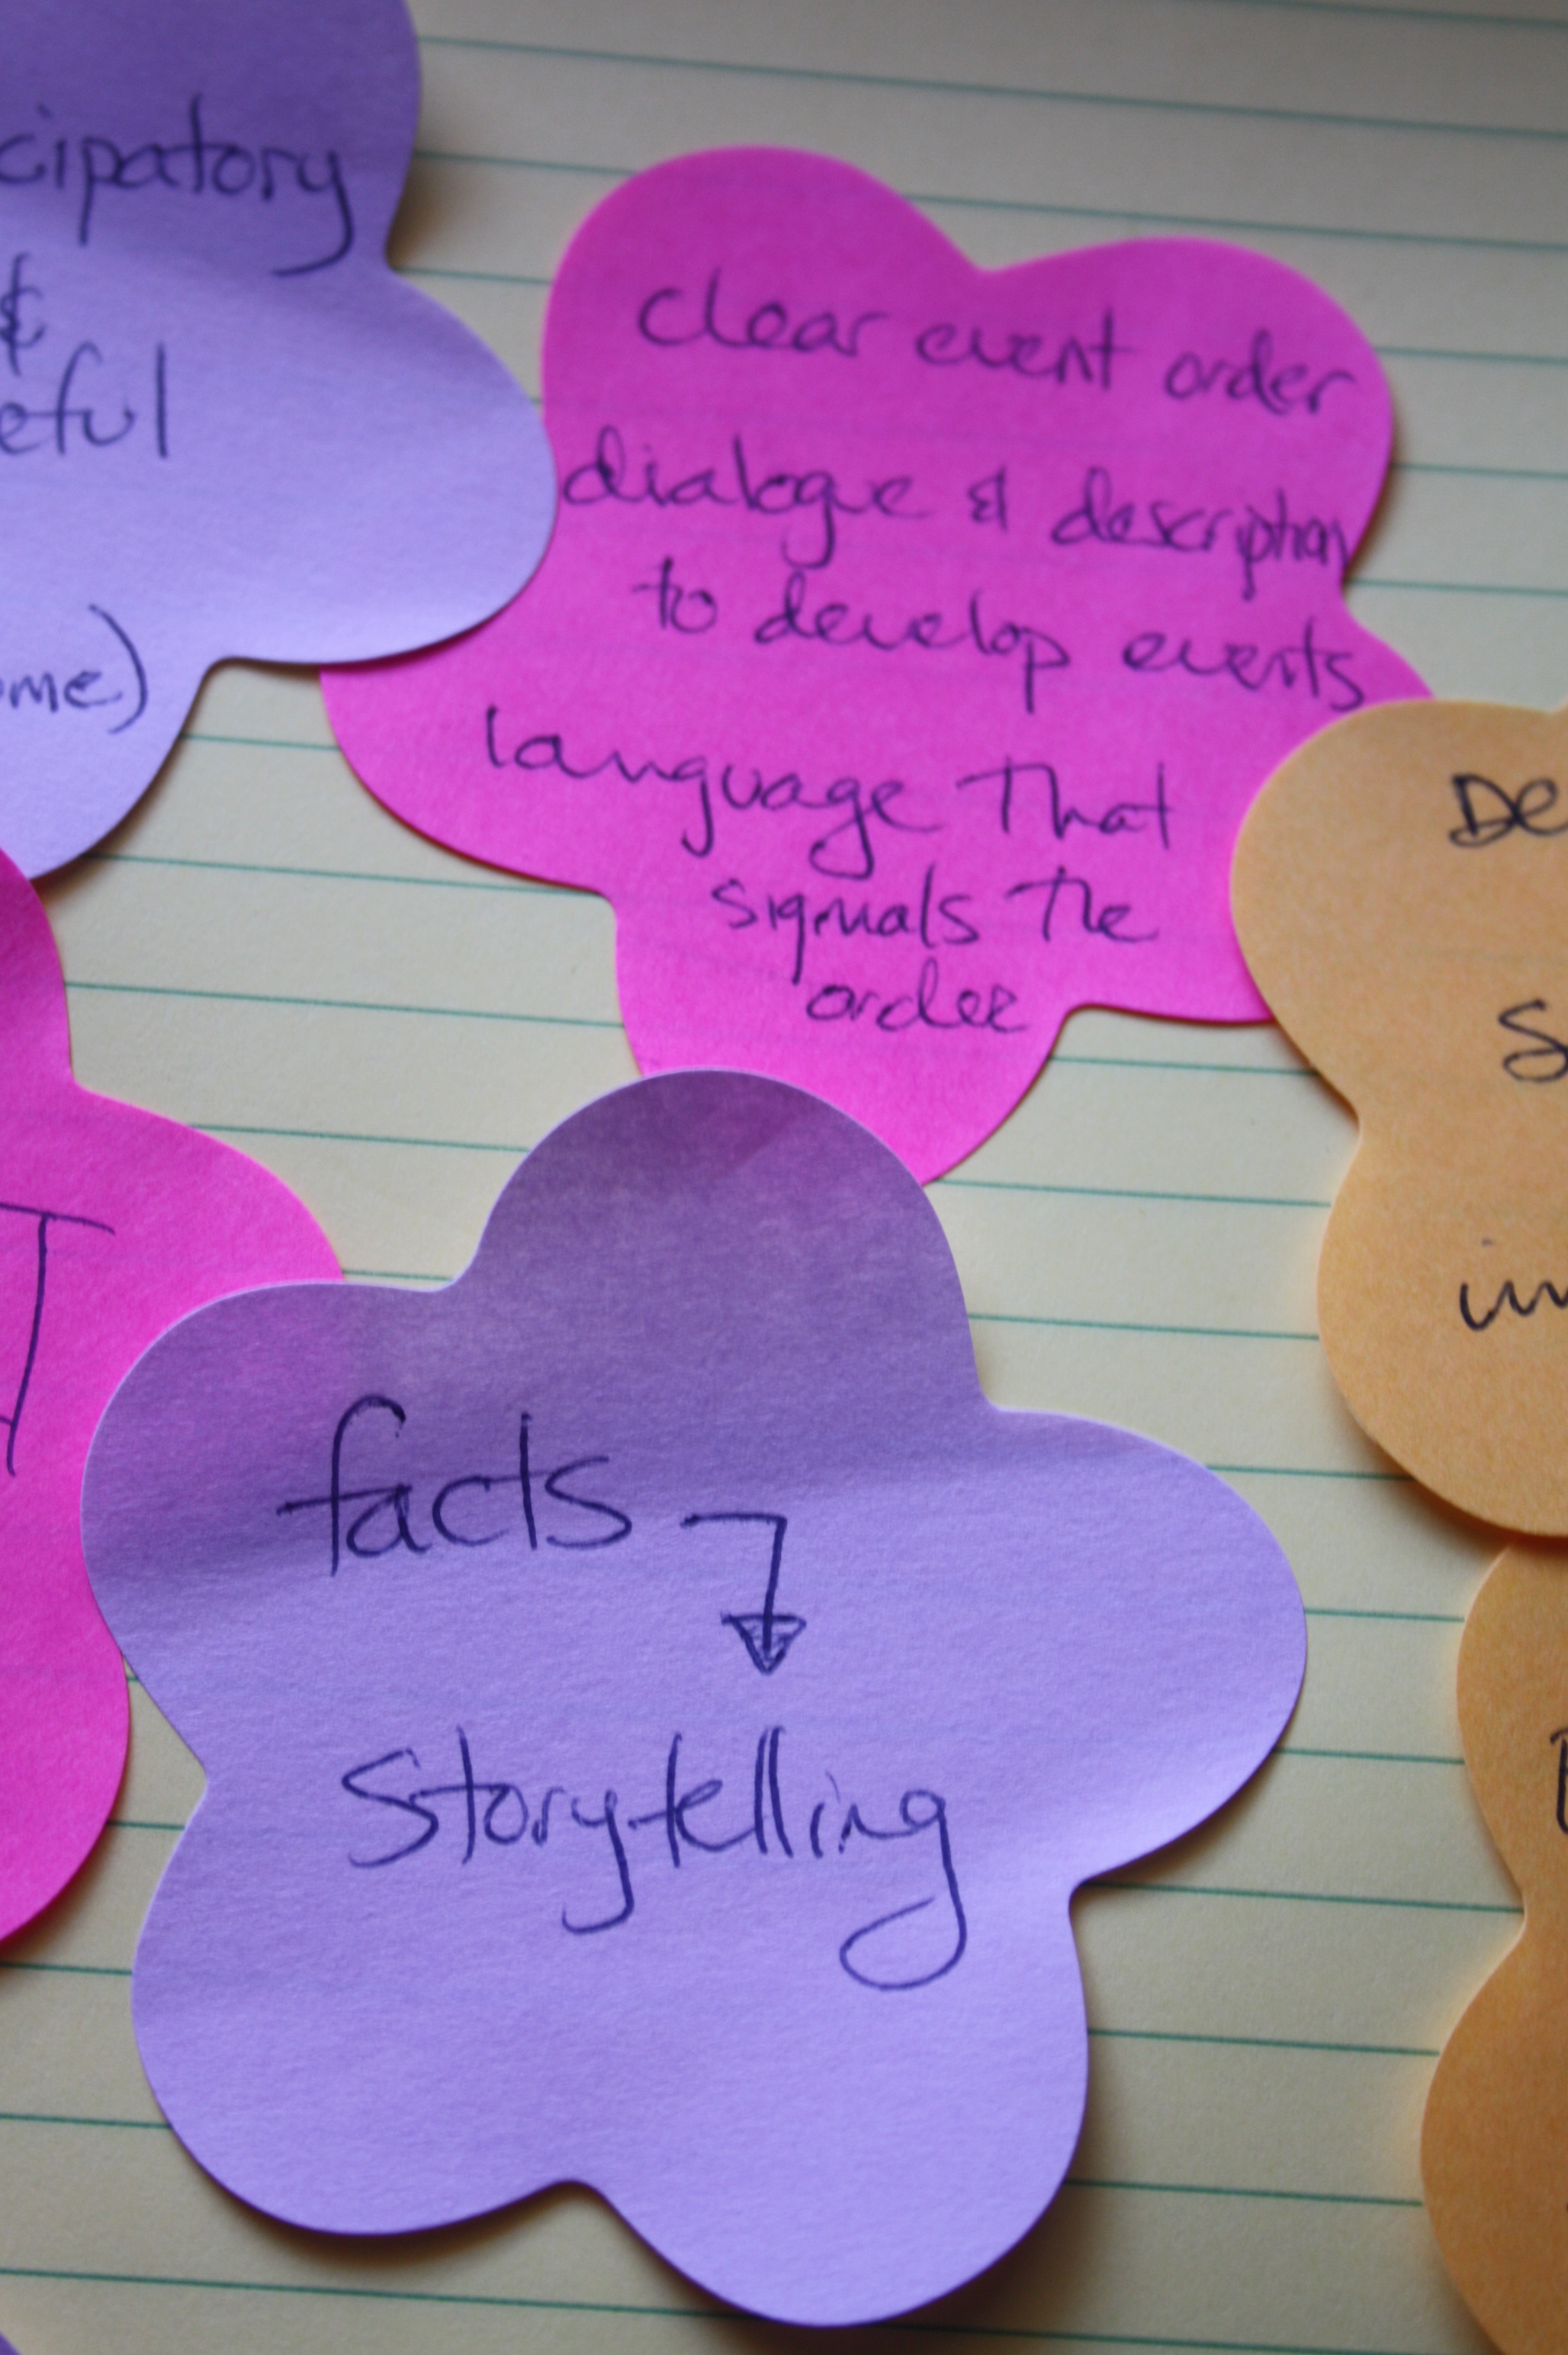 cipatory
&
eful
ome)
clear event order
dialogue & description
to develop events
language That
signals The
order
De
S
in
facts
Storytelling